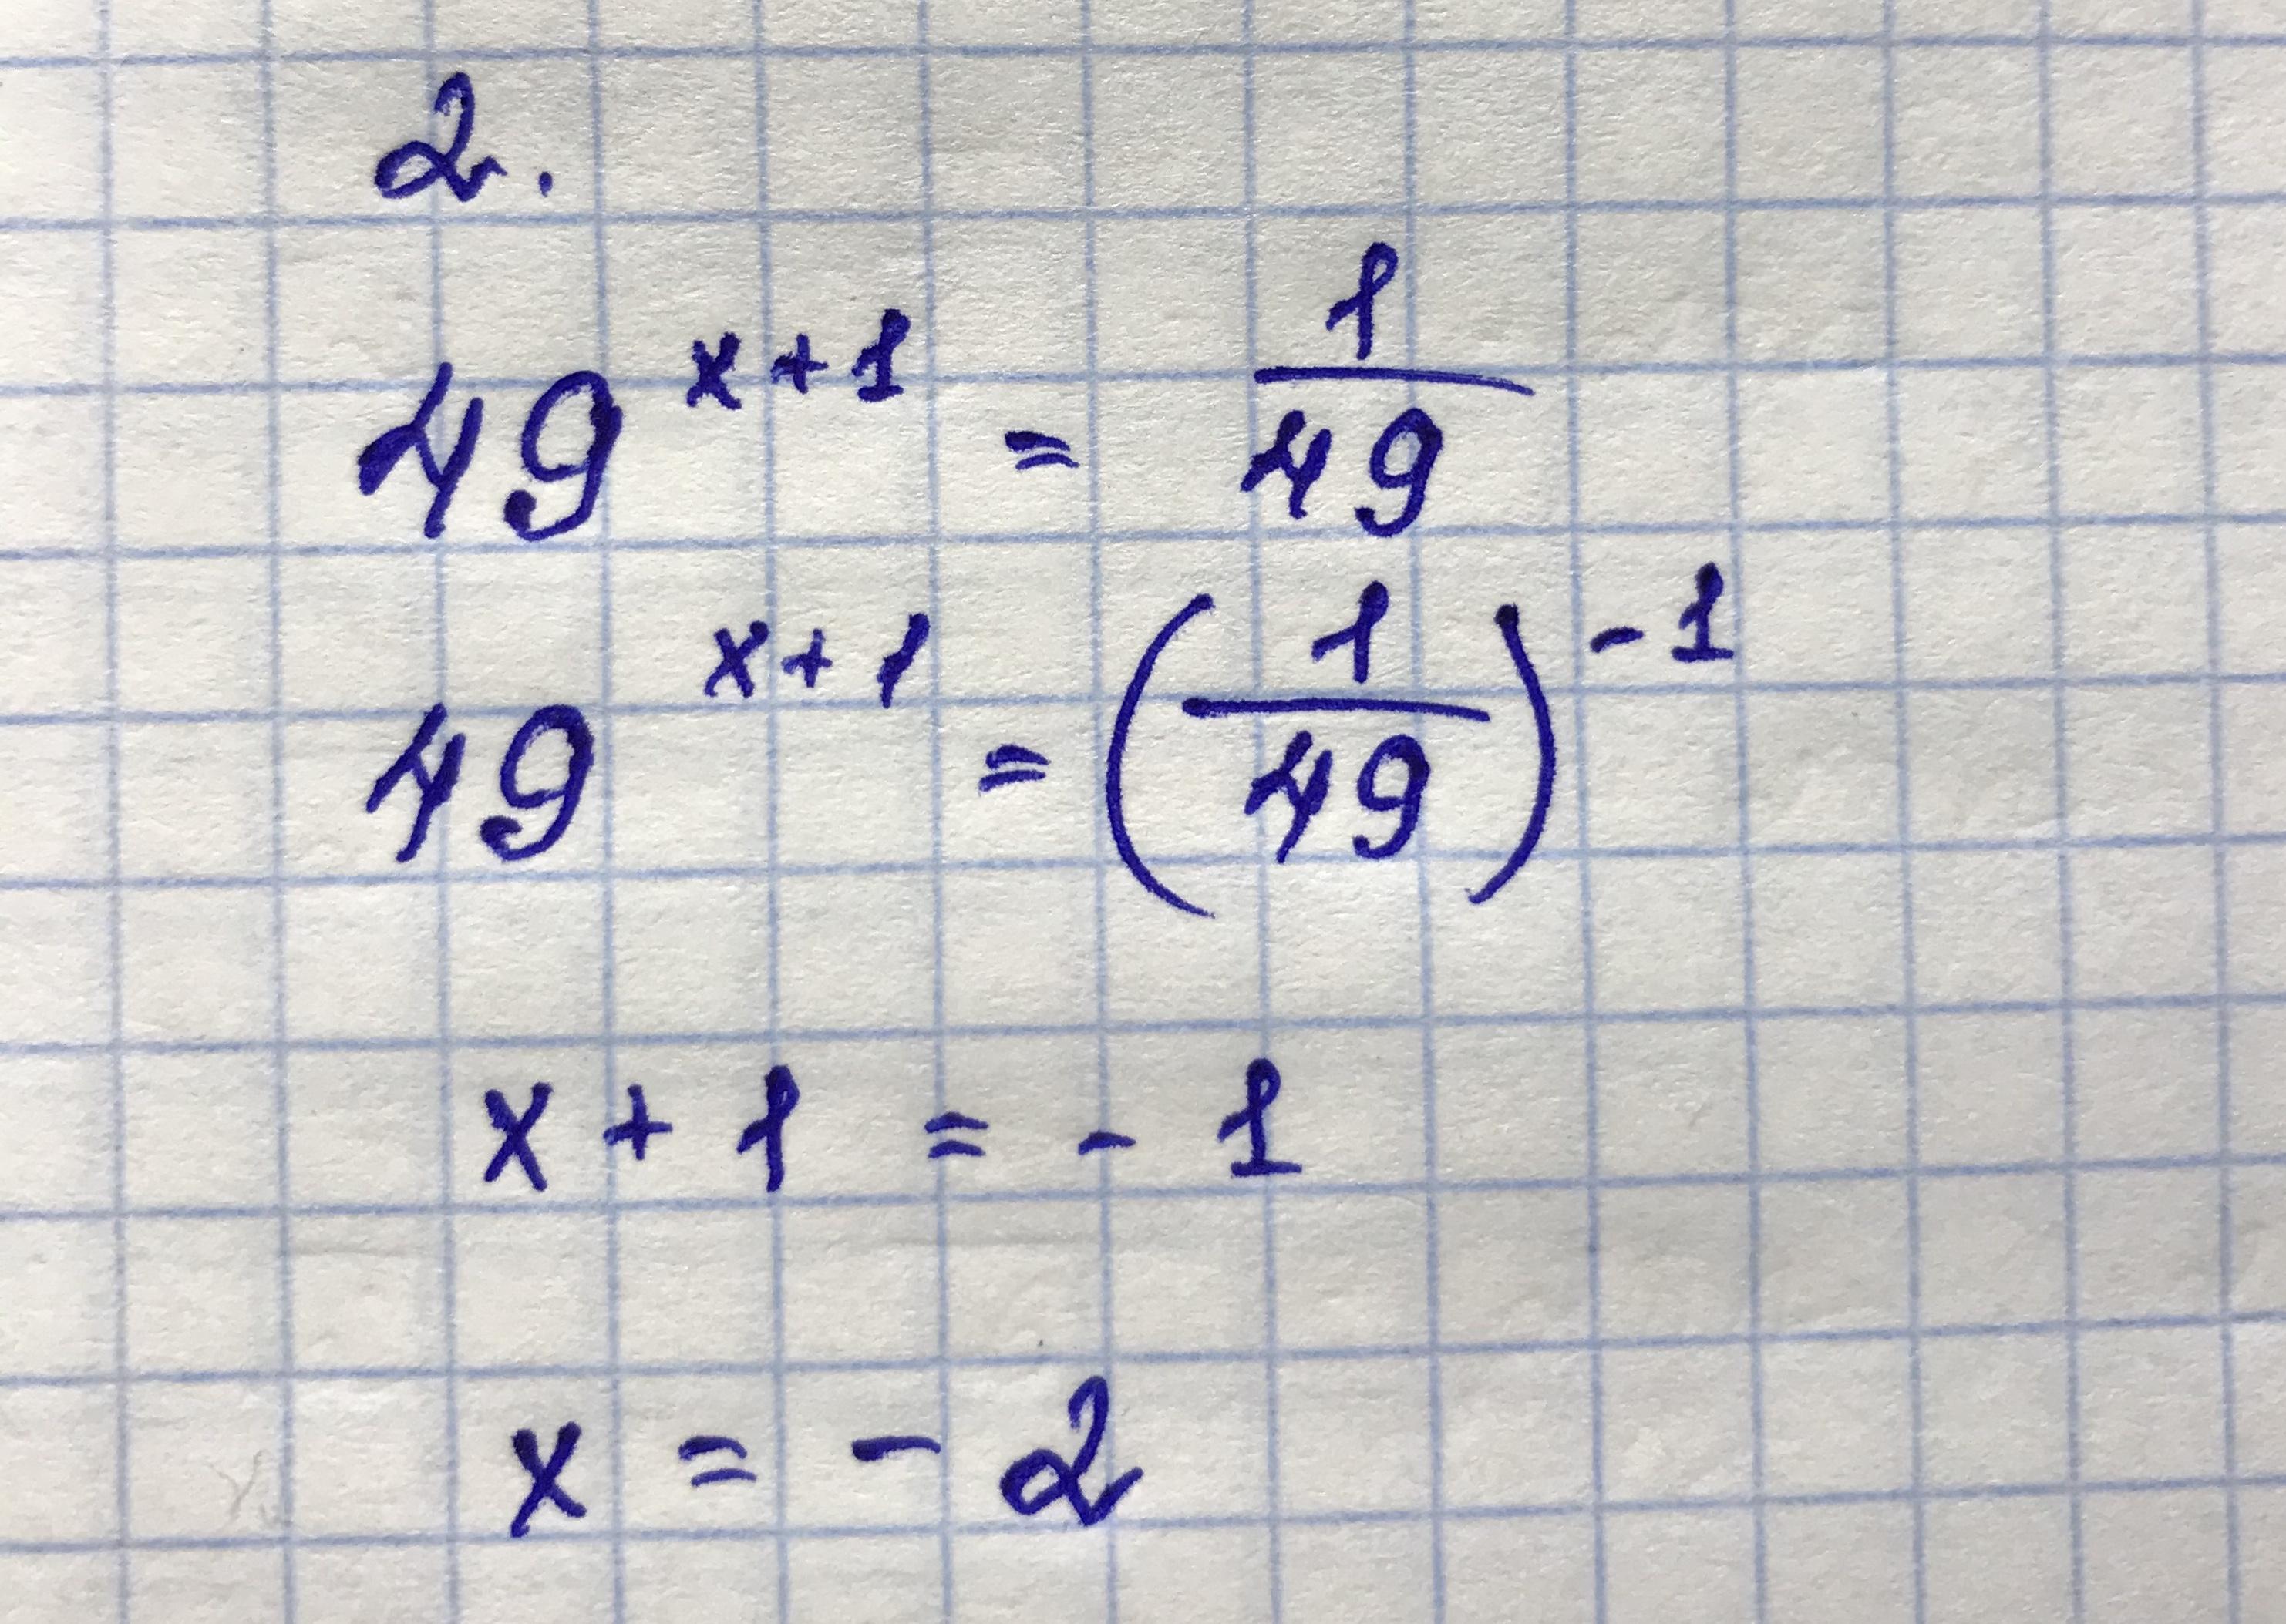 2.
49^{x+1} = \frac{1}{49}
49^{x+1} = \left(\frac{1}{49}\right)^{-1}
x + 1 = - 1
x = - 2